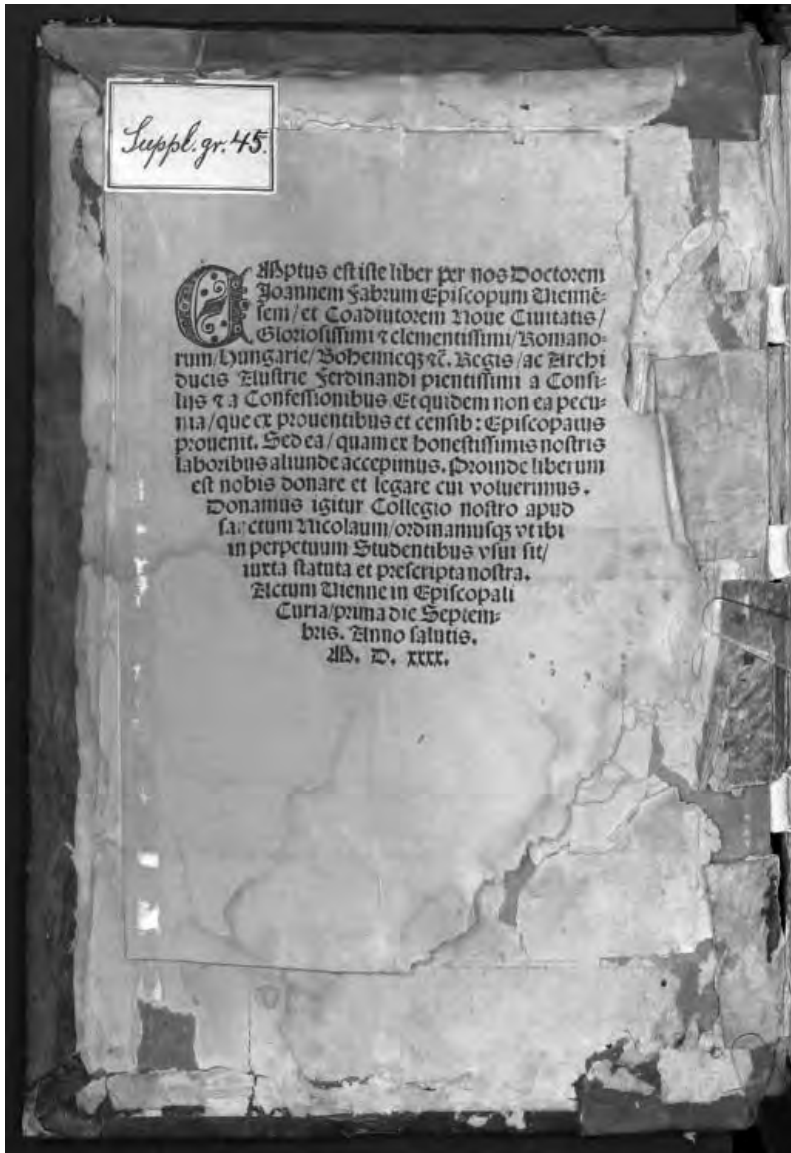 Suppl. gr. 45.
EMptus est iste liber per nos Doctorem
Joannem Fabrum Episcopum Viennē⸗
sem/et Coadiutorem Noue Ciuitatis/
Gloriosissimi ⁊ clementissimi/Romano⸗
rum/Hungarie/Bohemieqꝫ ⁊c̄. Regis/ac Archi
ducis Austrie Ferdinandi pientissimi a Consi⸗
lijs ⁊ a Confessionibus Et quidem non ea pecu⸗
nia/que ex prouentibus et censib: Episcopatus
prouenit. Sed ea/quam ex honestissimis nostris
laboribus aliunde accepimus. Proinde liberum
est nobis donare et legare cui voluerimus.
Donamus igitur Collegio nostro apud
sanctum Nicolaum/ordinamusqꝫ vt ibi
in perpetuum Studentibus vsui sit/
iuxta statuta et prescripta nostra.
Actum Vienne in Episcopali
Curia/prima die Septem⸗
bris. Anno salutis.
M. D. xxxx.